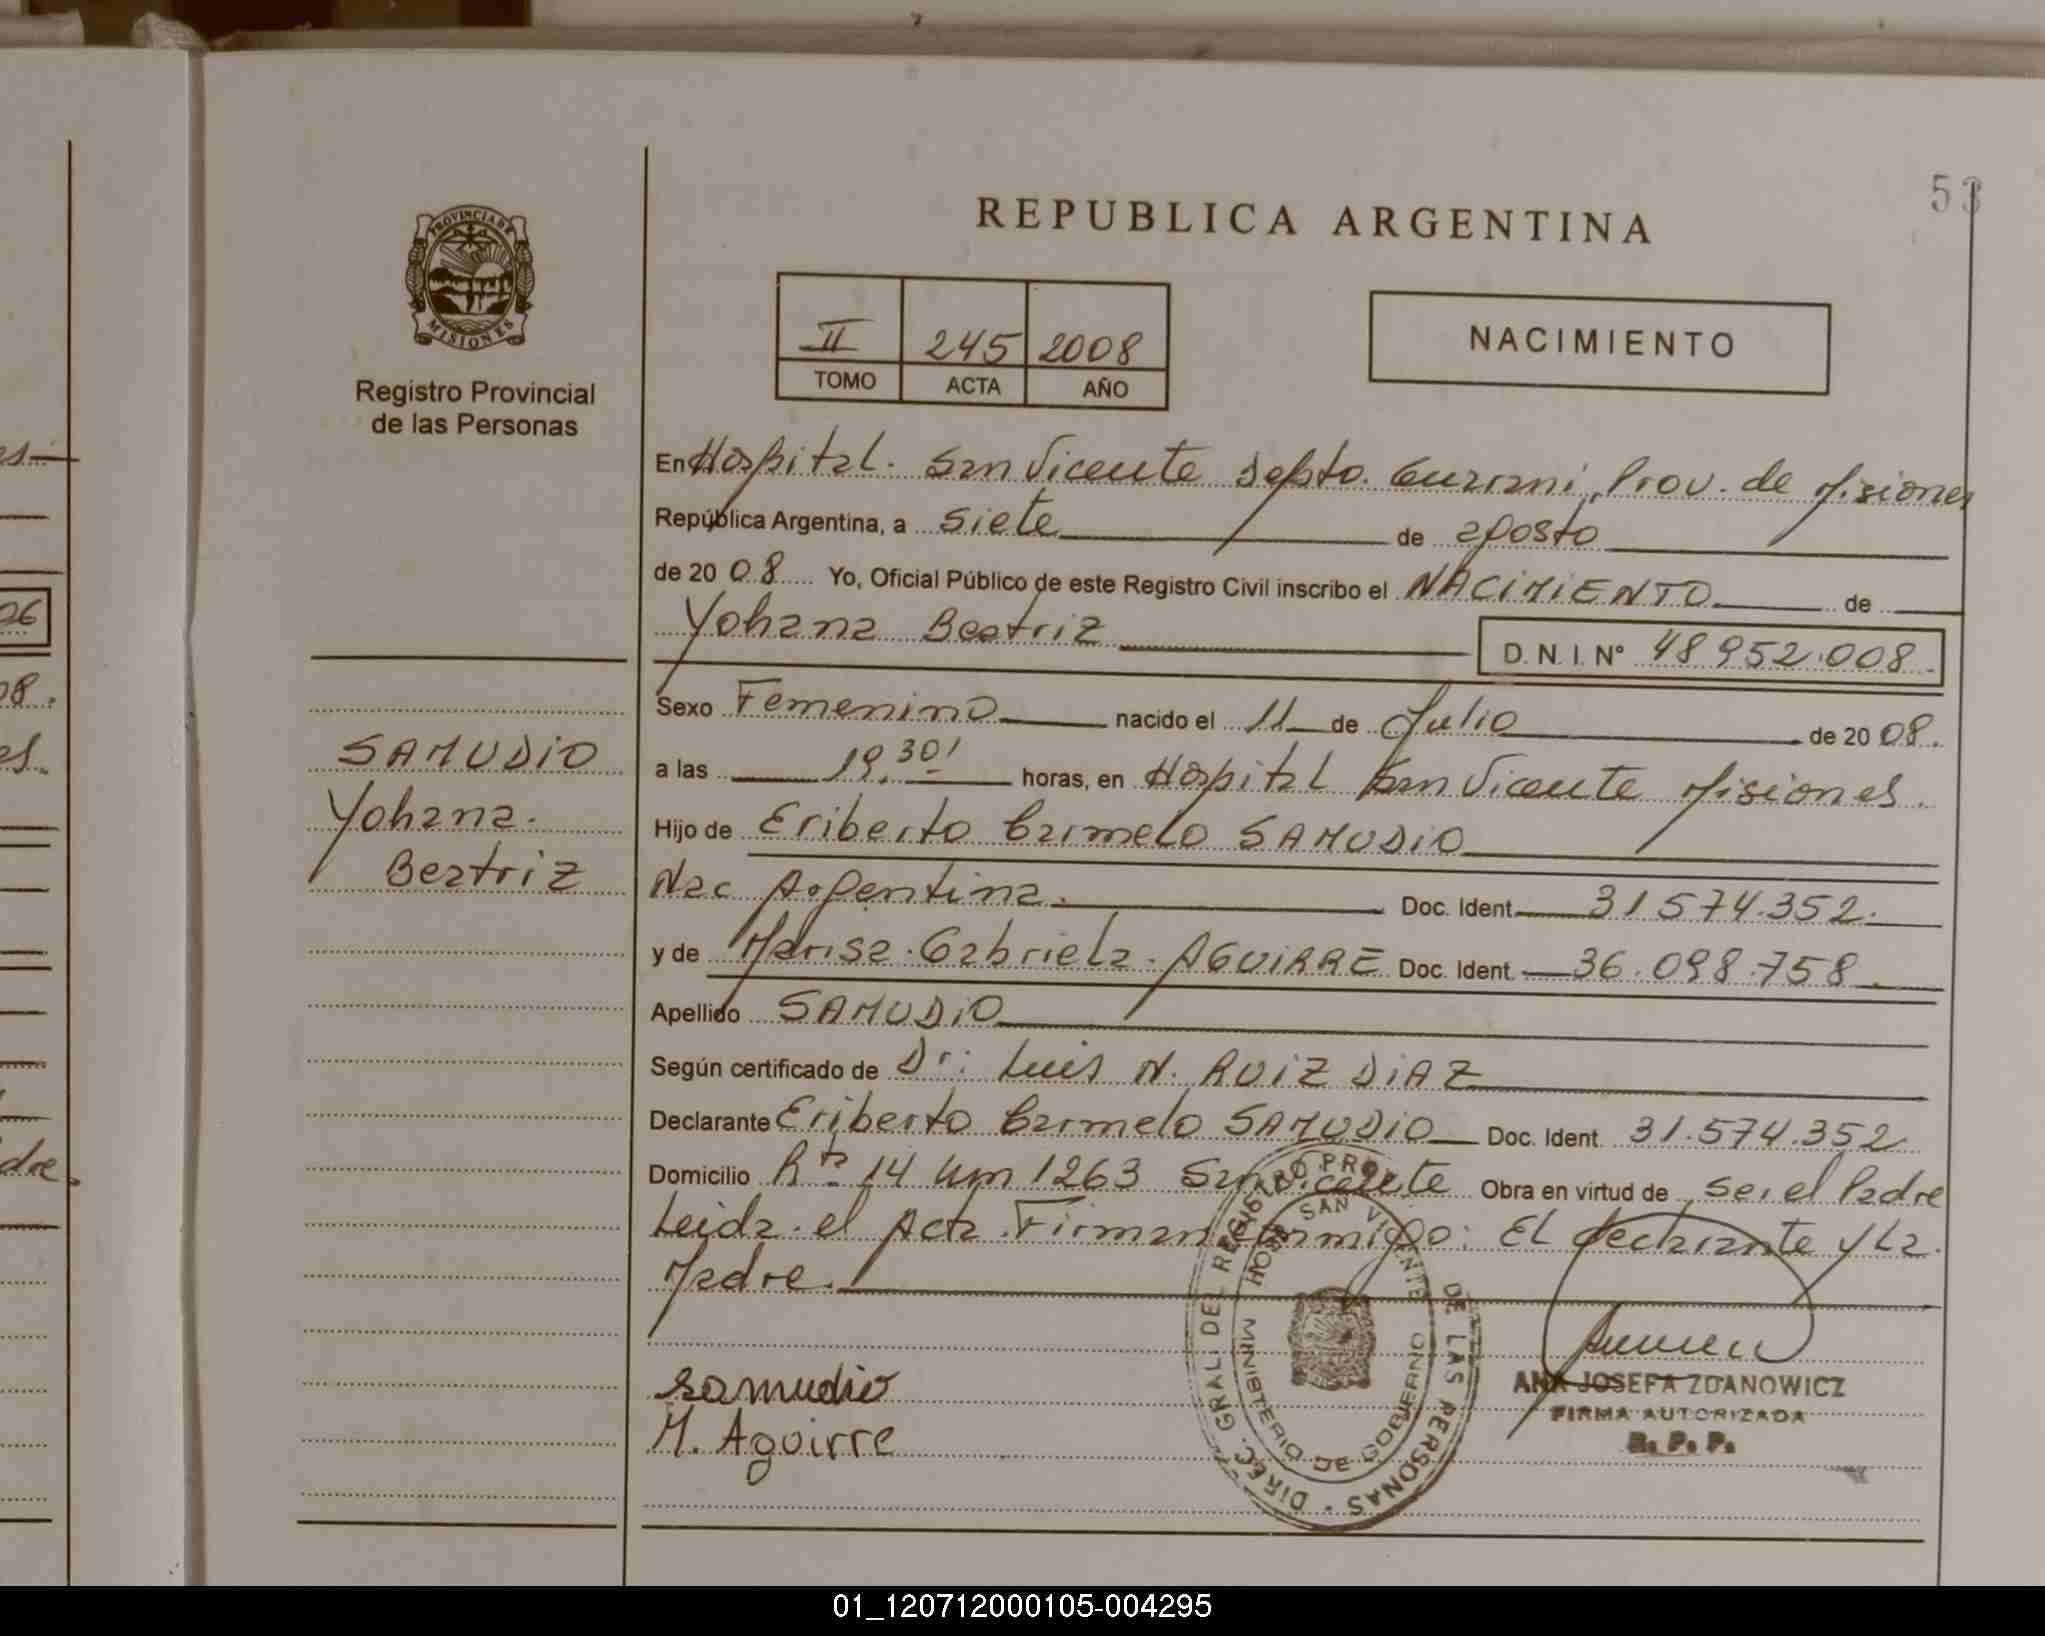 53
REPUBLICA ARGENTINA
PROVINCIA DE
MISIONES
Registro Provincial
de las Personas
II 245 2008
TOMO ACTA AÑO
NACIMIENTO
En Hospital. San Vicente Depto. Guarani, Prov. de Misiones
República Argentina, a siete de agosto
de 2008 Yo, Oficial Público de este Registro Civil inscribo el NACIMIENTO de
Yohana Beatriz D. N. I. N° 48 952.008
Sexo Femenino nacido el 11 de Julio de 2008.
SAMUDIO
a las 19.30' horas, en Hospital San Vicente Misiones.
Yohana.
Hijo de Eriberto Carmelo SAMUDIO
Beatriz
Nac Argentina. Doc. Ident. 31.574.352.
y de Marisa. Gabriela. AGUIRRE Doc. Ident. 36.098.758
Apellido SAMUDIO
Según certificado de Dr: Luis N. RUIZ DIAZ
Declarante Eriberto Carmelo SAMUDIO Doc. Ident. 31.574.352
Domicilio Rta 14 Km 1263 San Vicente Obra en virtud de ser el Padre
Leida el Acta. Firman conmigo: El declarante y La
Madre.
samudio
M. Aguirre
DIREC. GRAL. DEL REGISTRO PROV. DE LAS PERSONAS
HOSP. SAN VICENTE
MINISTERIO DE GOBIERNO
ANA JOSEFA ZDANOWICZ
FIRMA AUTORIZADA
R. P. P.
es.
06
08.
es.
dre
01_120712000105-004295